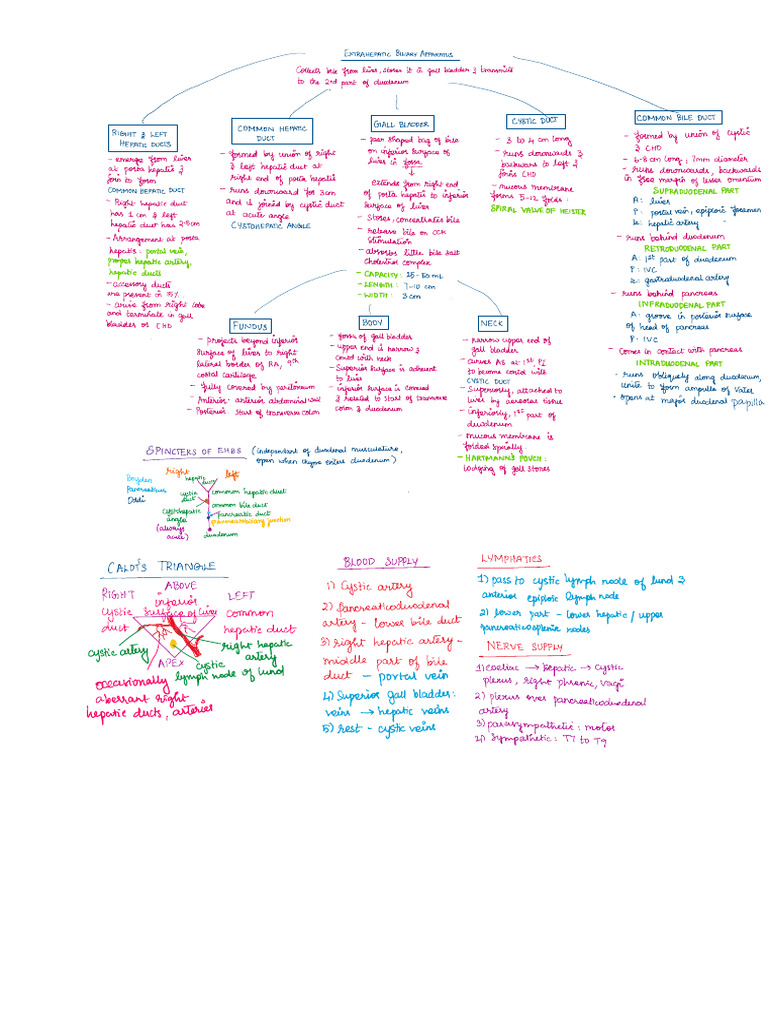 EXTRAHEPATIC BILIARY APPARATUS
Collects bile from liver, stores it in gall bladder & transmits
to the 2nd part of duodenum
RIGHT & LEFT
HEPATIC DUCTS
- emerge from liver
at porta hepatis &
join to form
COMMON HEPATIC DUCT
- Right hepatic duct
has 1 cm & left
hepatic duct has 2.5cm
- Arrangement at porta
hepatis: portal vein,
proper hepatic artery,
hepatic ducts
- accessory ducts
are present in 15%
- arise from right lobe
and terminate in gall
bladder or CHD
COMMON HEPATIC
DUCT
- formed by union of right
& left hepatic duct at
right end of porta hepatis
- runs downward for 3cm
and is joined by cystic duct
at acute angle
CYSTOHEPATIC ANGLE
GALL BLADDER
- pear shaped bag of bile
on inferior surface of
liver in fossa
↓
extends from right end
of porta hepatis to inferior
surface of liver
- stores, concentrates bile
- release bile on CCK
stimulation
- absorbs little bile salt
cholesterol complex
- CAPACITY: 25-50 mL
- LENGTH: 7-10 cm
- WIDTH: 3 cm
CYSTIC DUCT
- 3 to 4 cm long
- runs downwards &
backward to left &
joins CHD
- mucous membrane
forms 5-12 folds:
SPIRAL VALVE OF HEISTER
COMMON BILE DUCT
- formed by union of cystic
& CHD
- 6-8 cm long; 7mm diameter
- runs downwards, backwards
in free margin of lesser omentum
SUPRADUODENAL PART
A: liver
P: portal vein, epiploic foramen
L: hepatic artery
- runs behind duodenum
RETRODUODENAL PART
A: 1st part of duodenum
P: IVC
L: gastroduodenal artery
- runs behind pancreas
INFRADUODENAL PART
A: groove in posterior surface
of head of pancreas
P: IVC
- Comes in contact with pancreas
INTRADUODENAL PART
- runs obliquely along duodenum,
unite to form ampulla of Vater
- opens at major duodenal papilla
FUNDUS
- projects beyond inferior
surface of liver to right
lateral border of RA, 9th
costal cartilage
- fully covered by peritoneum
- Anterior: anterior abdominal wall
- Posterior: start of transverse colon
BODY
- form of gall bladder
- upper end is narrow &
conti with neck
- Superior surface is adherent
to liver
- inferior surface is covered
& related to start of transverse
colon & duodenum
NECK
- narrow upper end of
gall bladder
- curves AS at 1st PI
to become contd with
CYSTIC DUCT
- Superiorly, attached to
liver by aereolar tissue
- inferiorly, 1st part of
duodenum
- mucous membrane is
folded spirally
- HARTMANN'S POUCH:
lodging of gall stones
SPINCTERS OF EHBS (independent of duodenal musculature,
open when chyme enters duodenum)
Boyden
Pancreaticus
Oddi
right
left
hepatic
duct
cystic
duct
common hepatic duct
common bile duct
cystohepatic
angle
(always
acute)
pancreatic duct
pancreaticobiliary junction
duodenum
CALOT'S TRIANGLE
ABOVE
RIGHT
LEFT
inferior
surface of liver
cystic
duct
common
hepatic duct
cystic artery
right hepatic
artery
APEX
cystic
lymph node of lund
occasionally
aberrant right
hepatic ducts, arteries
BLOOD SUPPLY
1) Cystic artery
2) pancreaticoduodenal
artery - lower bile duct
3) right hepatic artery -
middle part of bile
duct - portal vein
4) Superior gall bladder:
veins → hepatic veins
5) rest - cystic veins
LYMPHATICS
1) pass to cystic lymph node of lund &
anterior epiploic lymph node
2) lower part - lower hepatic / upper
pancreaticosplenic nodes
NERVE SUPPLY
1) coeliac → hepatic → cystic
plexus, right phrenic, vagi
2) plexus over pancreaticoduodenal
artery
3) parasympathetic: motor
4) Sympathetic: T7 to T9